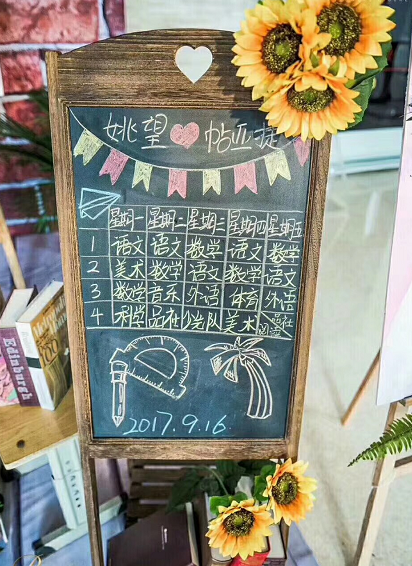 姚望 帖亚提
星期一 星期二 星期三 星期四 星期五
1 语文 语文 数学 语文 数学
2 美术 数学 语文 数学 语文
3 数学 音乐 外语 体育 外语
4 科学 品社 少先队 美术 品社
2017.9.16
Edinburgh